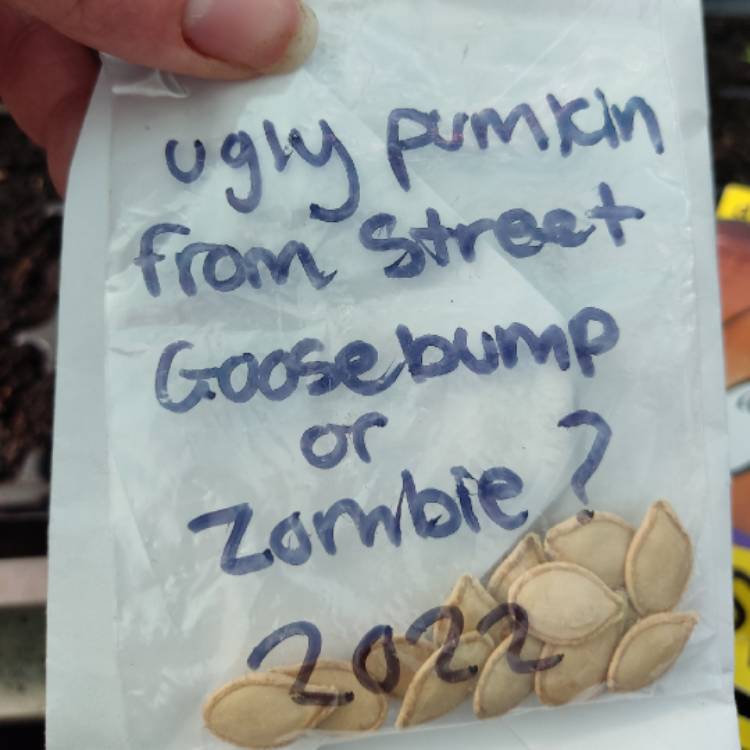 ugly pumkin
from Street
Goosebump
or
Zombie?
2022